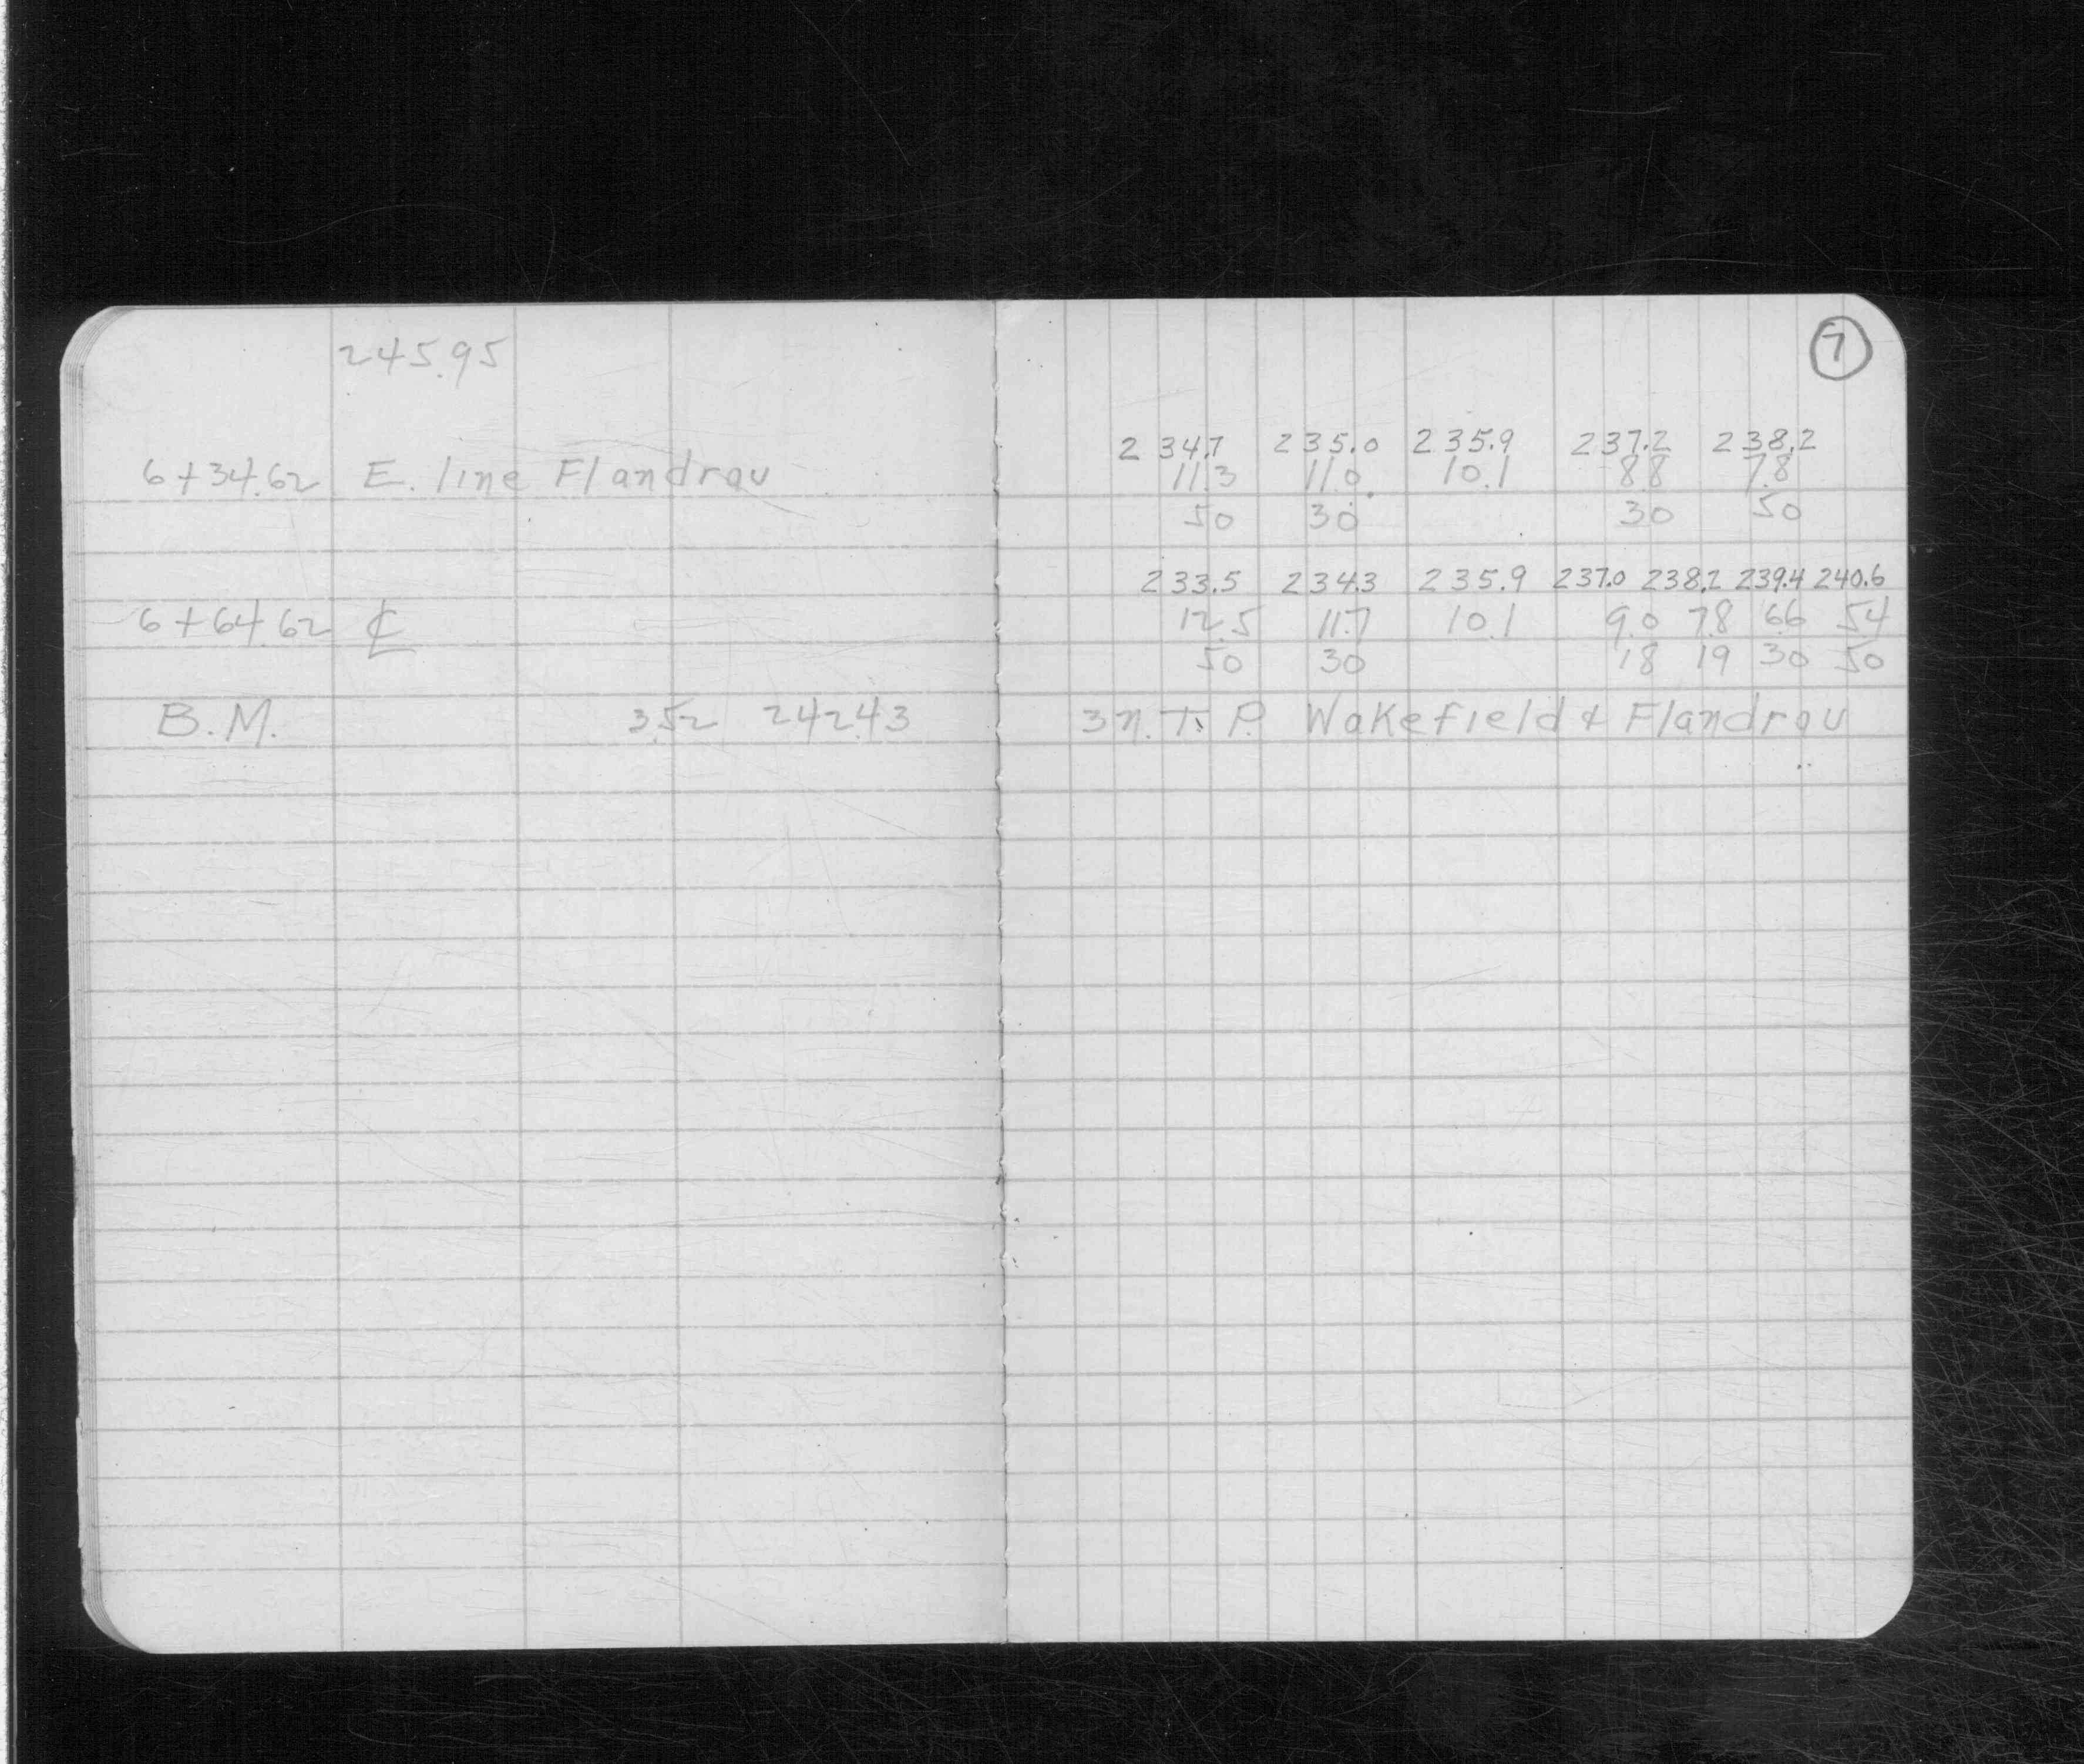 245.95
7
234.7 235.0 235.9 237.2 238.2
6+34.62 E. line Flandrau 11.3 11.0 10.1 8.8 7.8
50 30 30 50
233.5 234.3 235.9 237.0 238.2 239.4 240.6
6+64.62 ℄ 12.5 11.7 10.1 9.0 7.8 6.6 5.4
50 30 18 19 30 50
B.M. 3.52 242.43 3n. T.P. Wakefield & Flandrau